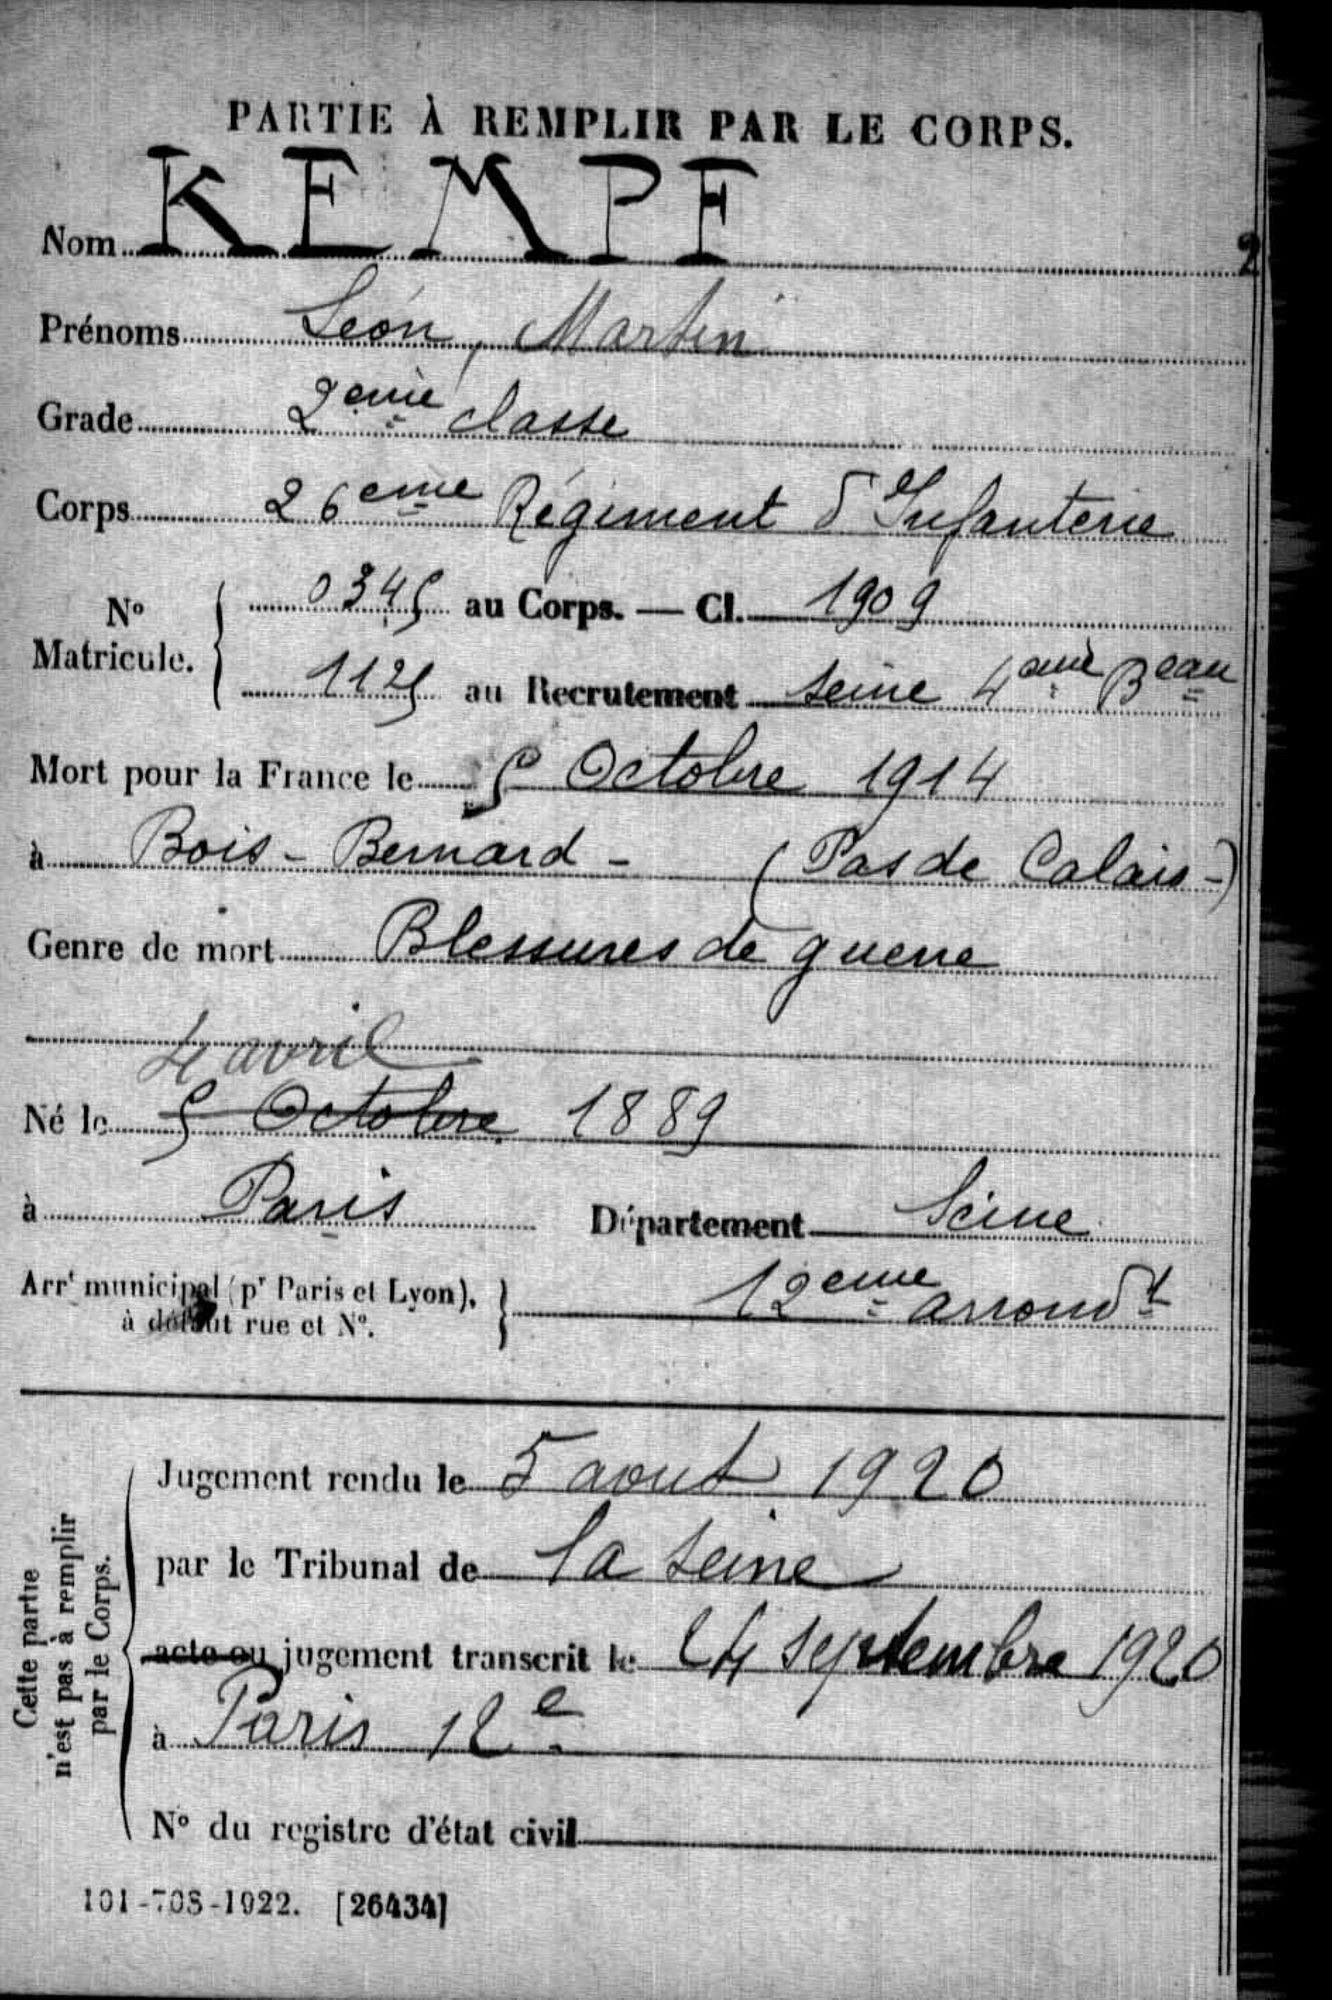 PARTIE À REMPLIR PAR LE CORPS.
Nom KEMPF
2
Prénoms Léon, Martin
Grade 2ème classe
Corps 26ème Régiment d'Infanterie
N° Matricule. { 0345 au Corps. — Cl. 1909
1125 au Recrutement Seine 4ème Beau
Mort pour la France le 5 Octobre 1914
à Bois-Bernard - (Pas de Calais-)
Genre de mort Blessures de guerre
4 avril
Né le 5 Octobre 1889
à Paris Département Seine
Arrt municipal (pr Paris et Lyon), à défaut rue et N°. } 12ème arrondt
Cette partie n'est pas à remplir par le Corps.
Jugement rendu le 5 aout 1920
par le Tribunal de la Seine
acte ou jugement transcrit le 24 septembre 1920
à Paris 12e
N° du registre d'état civil
101-708-1922. [26434]